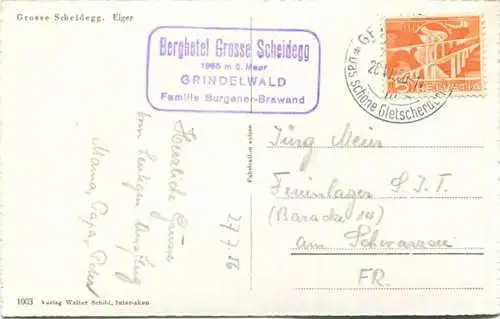 Grosse Scheidegg. Eiger
Berghotel Grosse Scheidegg
1965 m ü. Meer
GRINDELWALD
Familie Burgener-Brawand
das schöne Gletscherdorf
5
HELVETIA
Herzliche Grüsse
vom heutigen Ausflug
Mama, Papa, Peter
27.7.56
Jürg Meier
Ferienlager S.I.T.
(Baracke 14)
am Schwarzsee
FR.
1003 Verlag Walter Schild, Interlaken